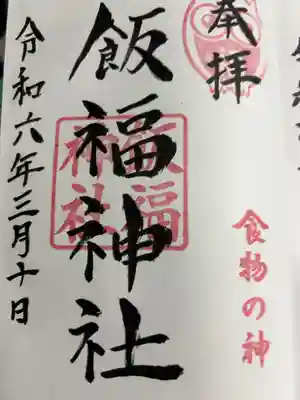 奉拝
食物の神
飯福神社
飯福神社
令和六年三月十日